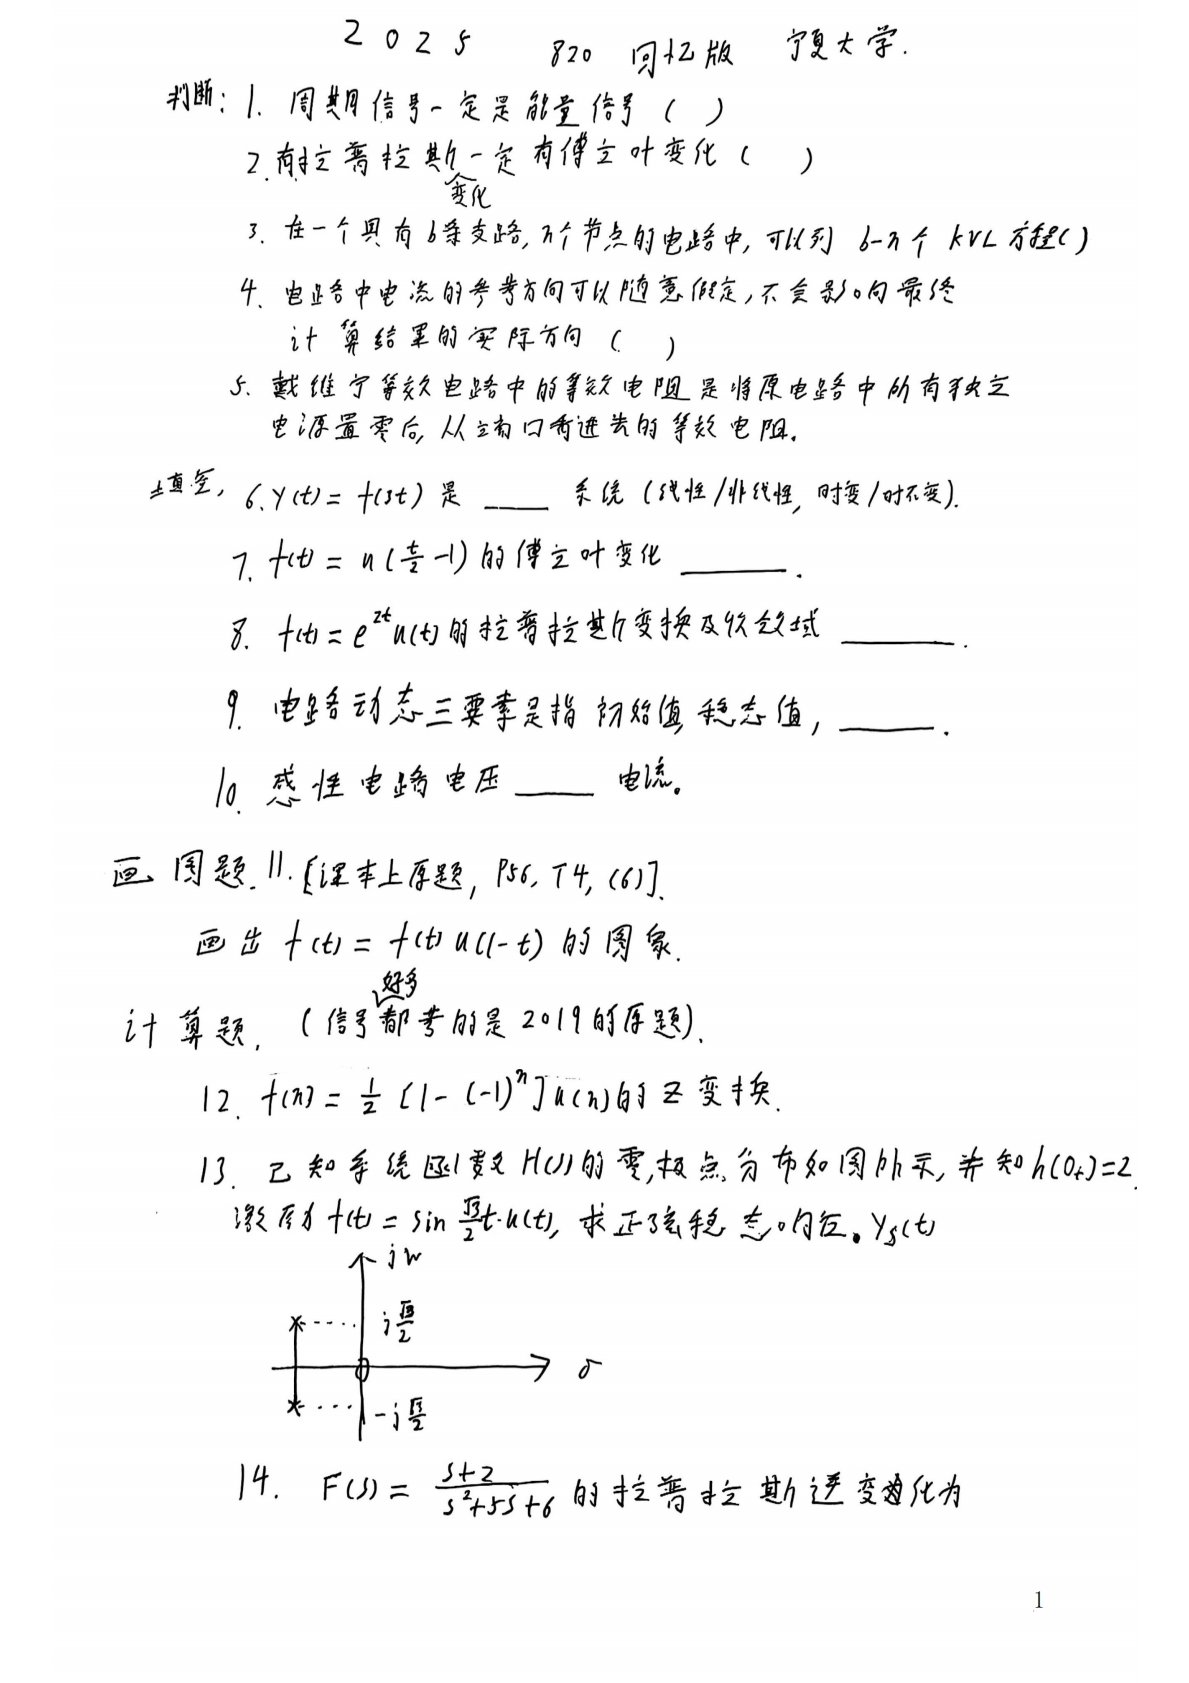 2025 820 回忆版 宁夏大学.
判断: 1. 周期信号一定是能量信号 ( )
2. 有拉普拉斯变化一定有傅立叶变化 ( )
3. 在一个具有b条支路, n个节点的电路中, 可以列 b-n个 KVL 方程( )
4. 电路中电流的参考方向可以随意假定, 不会影响最终
计算结果的实际方向 ( )
5. 戴维宁等效电路中的等效电阻是将原电路中所有独立
电源置零后, 从端口看进去的等效电阻.
填空, 6. y(t) = f(3t) 是 ____ 系统 (线性/非线性, 时变/时不变).
7. f(t) = u(t/2 -1) 的傅立叶变化 ______.
8. f(t) = e^{2t}u(t)的拉普拉斯变换及收敛域 ______.
9. 电路动态三要素是指 初始值, 稳态值, ______.
10. 感性电路电压 ____ 电流。
画图题. 11. [课本上原题, P56, T4, (6)].
画出 f(t) = f(t) u(1-t) 的图象.
计算题. (信号好多都考的是2019的原题).
12. f(n) = 1/2 [1-(-1)^n]u(n)的Z变换.
13. 已知系统函数H(s)的零,极点分布如图所示, 并知h(0+)=2.
激励为 f(t) = sin √3/2 t·u(t), 求正弦稳态响应. Ys(t)
jw
j√3/2
σ
-j√3/2
14. F(s) = (s+2)/(s²+5s+6) 的拉普拉斯逆变化为
1